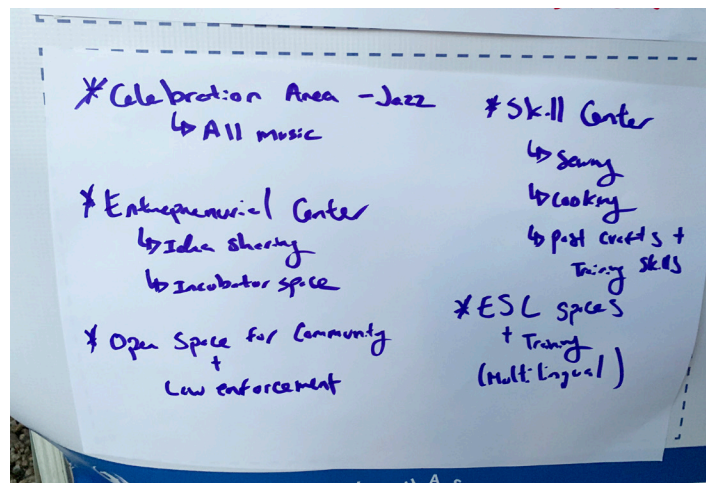 * Celebration Area - Jazz
↳ All music
* Entreprenurial Center
↳ Idea sharing
↳ Incubator space
* Open Space for Community
+
Law enforcement
* Skill Center
↳ Sewing
↳ Cooking
↳ Past crafts +
Training Skills
* ESL spaces
+ Training
(Multilingual)